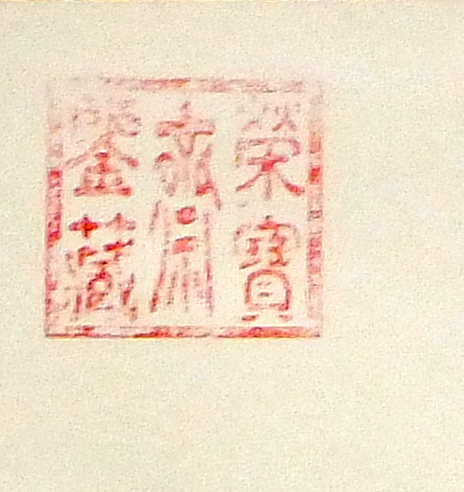 榮寶
齋
鑒藏